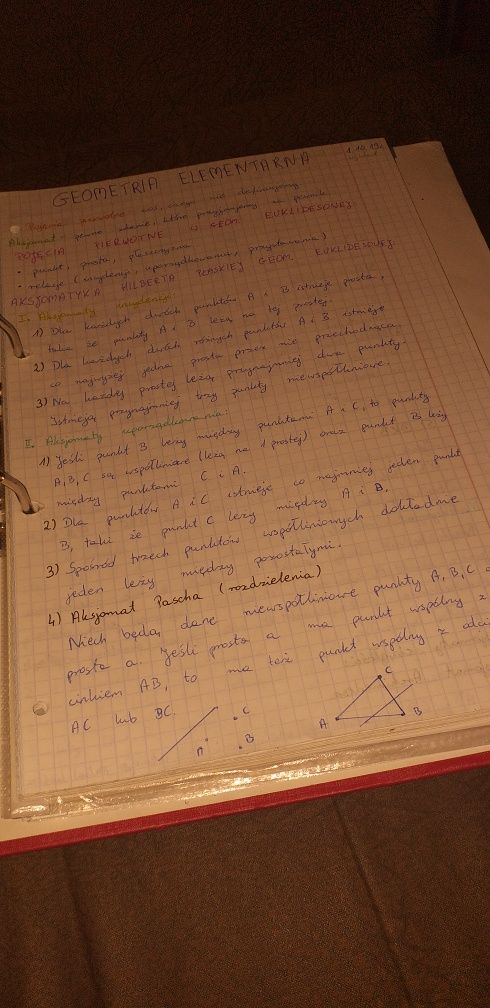 1.10.19r.
GEOMETRIA ELEMENTARNA
Pojęcia pierwotne - coś, czego nie definiujemy
Aksjomat - pewne zdanie, które przyjmujemy za pewnik
POJĘCIA PIERWOTNE W GEOM. EUKLIDESOWEJ
• punkt, prosta, płaszczyzna
• relacje (incydencji, uporządkowania, przystawania)
AKSJOMATYKA HILBERTA PŁASKIEJ GEOM. EUKLIDESOWEJ
I. Aksjomaty incydencji:
1) Dla każdych dwóch punktów A i B istnieje prosta,
taka że punkty A i B leżą na tej prostej.
2) Dla każdych dwóch różnych punktów A i B istnieje
co najwyżej jedna prosta przez nie przechodząca.
3) Na każdej prostej leżą przynajmniej dwa punkty.
Istnieją przynajmniej trzy punkty niewspółliniowe.
II. Aksjomaty uporządkowania:
1) Jeśli punkt B leży między punktami A i C, to punkty
A, B, C są współliniowe (leżą na 1 prostej) oraz punkt B leży
między punktami C i A.
2) Dla punktów A i C istnieje co najmniej jeden punkt
B, taki że punkt C leży między A i B.
3) Spośród trzech punktów współliniowych dokładnie
jeden leży między pozostałymi.
4) Aksjomat Pascha (rozdzielenia)
Niech będą dane niewspółliniowe punkty A, B, C
prosta a. Jeśli prosta a ma punkt wspólny z
cinkiem AB, to ma też punkt wspólny z odci
AC lub BC.
C
A
B
C
A
B